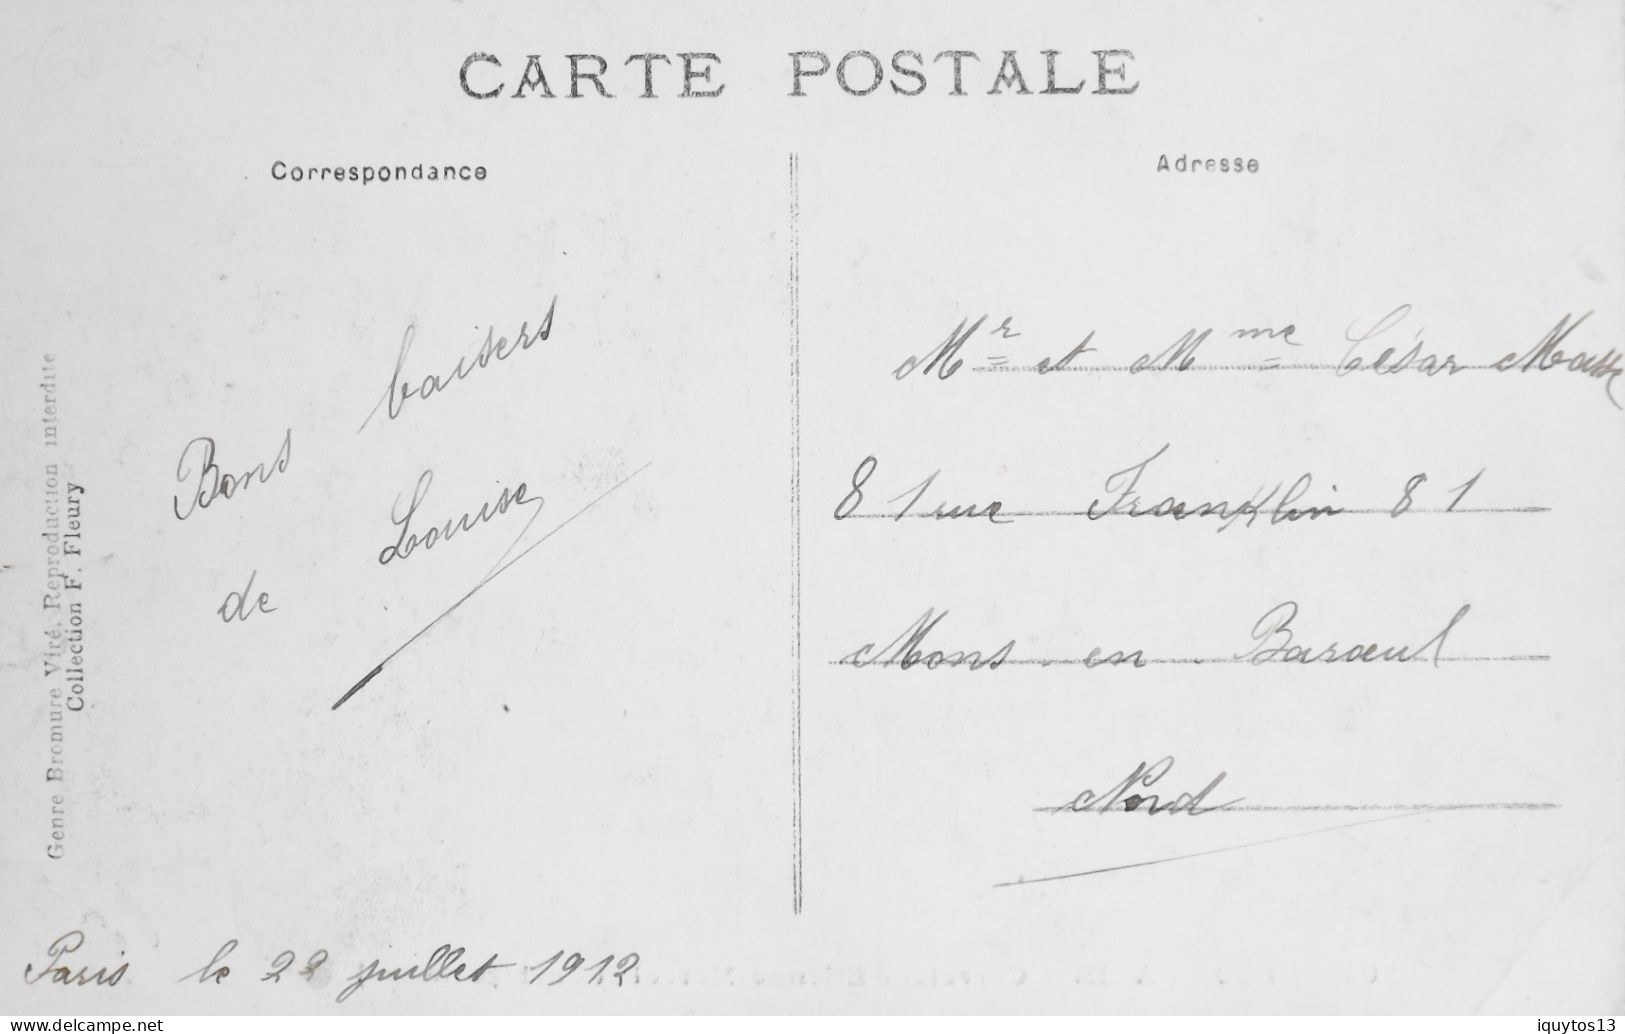 CARTE POSTALE
Correspondance
Adresse
Bons baisers
de Louise
Paris le 22 juillet 1912
Mr et Mme César Masse
81 rue Franklin 81
Mons en Baroeul
Nord
Genre Bromure Viré, Reproduction interdite
Collection F. Fleury
www.delcampe.net
iquytos13